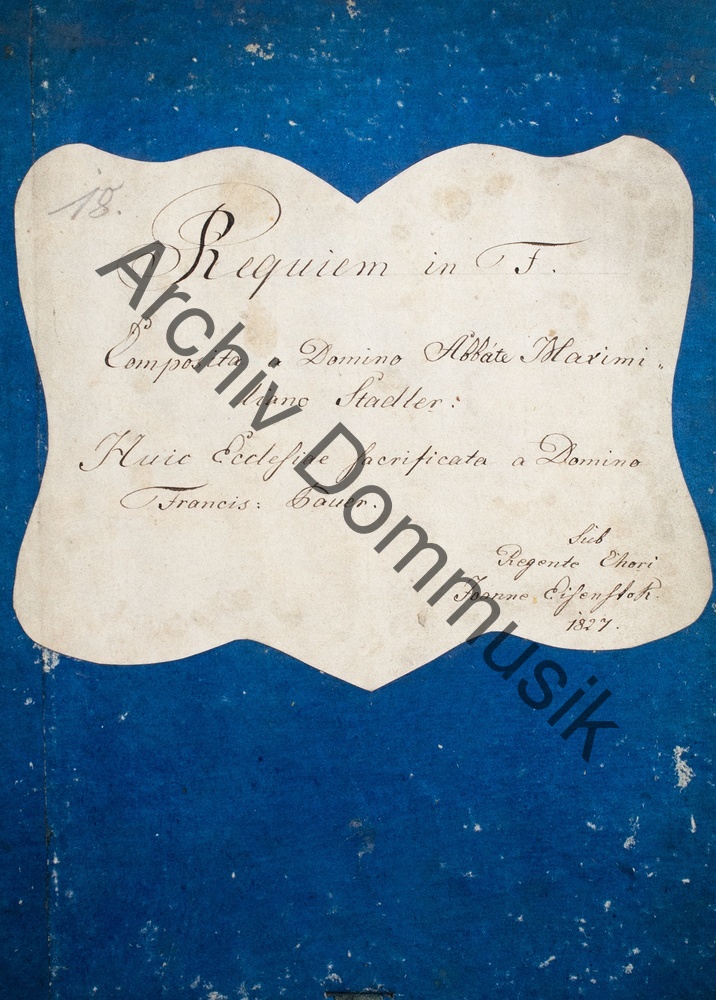 18.
Requiem in F.
Composita a Domino Abbáte Maximi„
liano Stadler:
Huic Ecclesiae sacrificata a Domino
Francis: Bauer.
Sub
Regente Chori
Joanne Eisenstok.
1827.
Archiv Dommusik